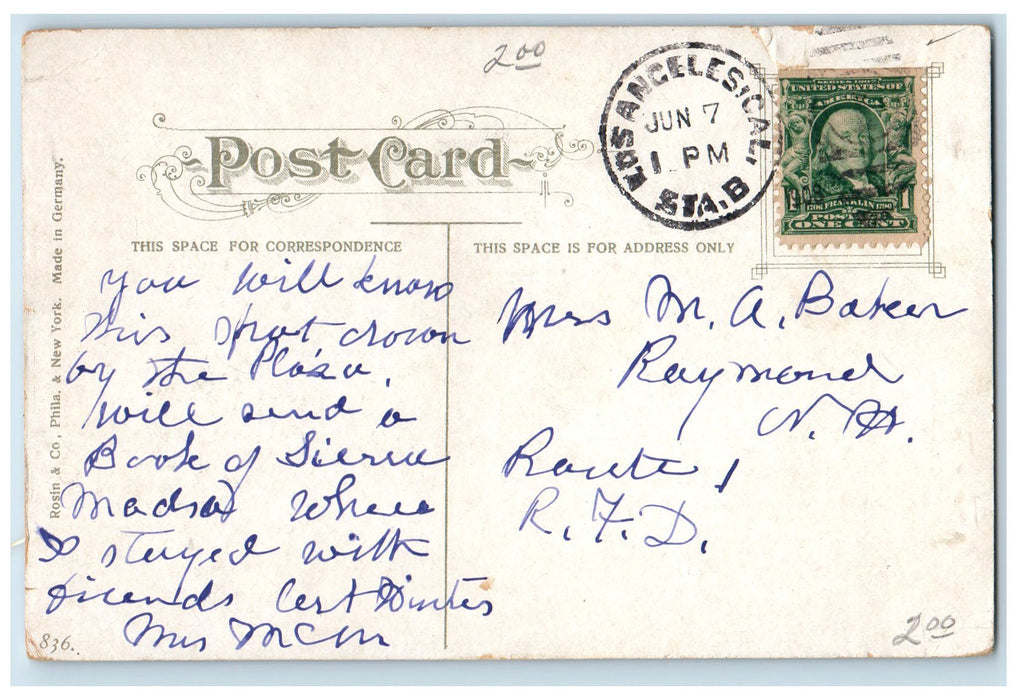 2 00
LOS ANGELES, CAL.
JUN 7
1 PM
STA. B
SERIES 1902
UNITED STATES OF
AMERICA
1706 FRANKLIN 1790
1
POSTAGE
ONE CENT
Post Card
THIS SPACE FOR CORRESPONDENCE
THIS SPACE IS FOR ADDRESS ONLY
Rosin & Co., Phila. & New York. Made in Germany.
you will know
this spot down
by the Plaza,
will send a
Book of Sierra
Madra where
I stayed with
friends last Winter
Mrs
Mrs M. A. Baker
Raymond
N. H.
Route 1
R. F. D.
836.
2 00